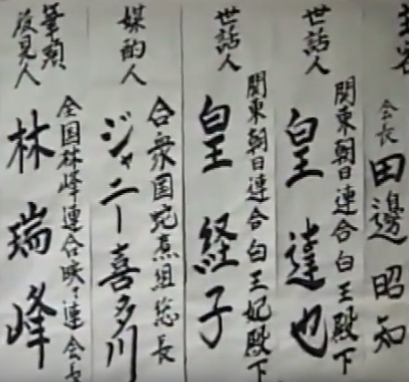 会長
田邊昭知
世話人
関東朝日連合白王殿下
皇達也
世話人
関東朝日連合白王妃殿下
皇経子
媒酌人
合衆国蛇煮組総長
ジャニー喜多川
筆頭
後見人
全国林峰連合映々連会長
林瑞峰